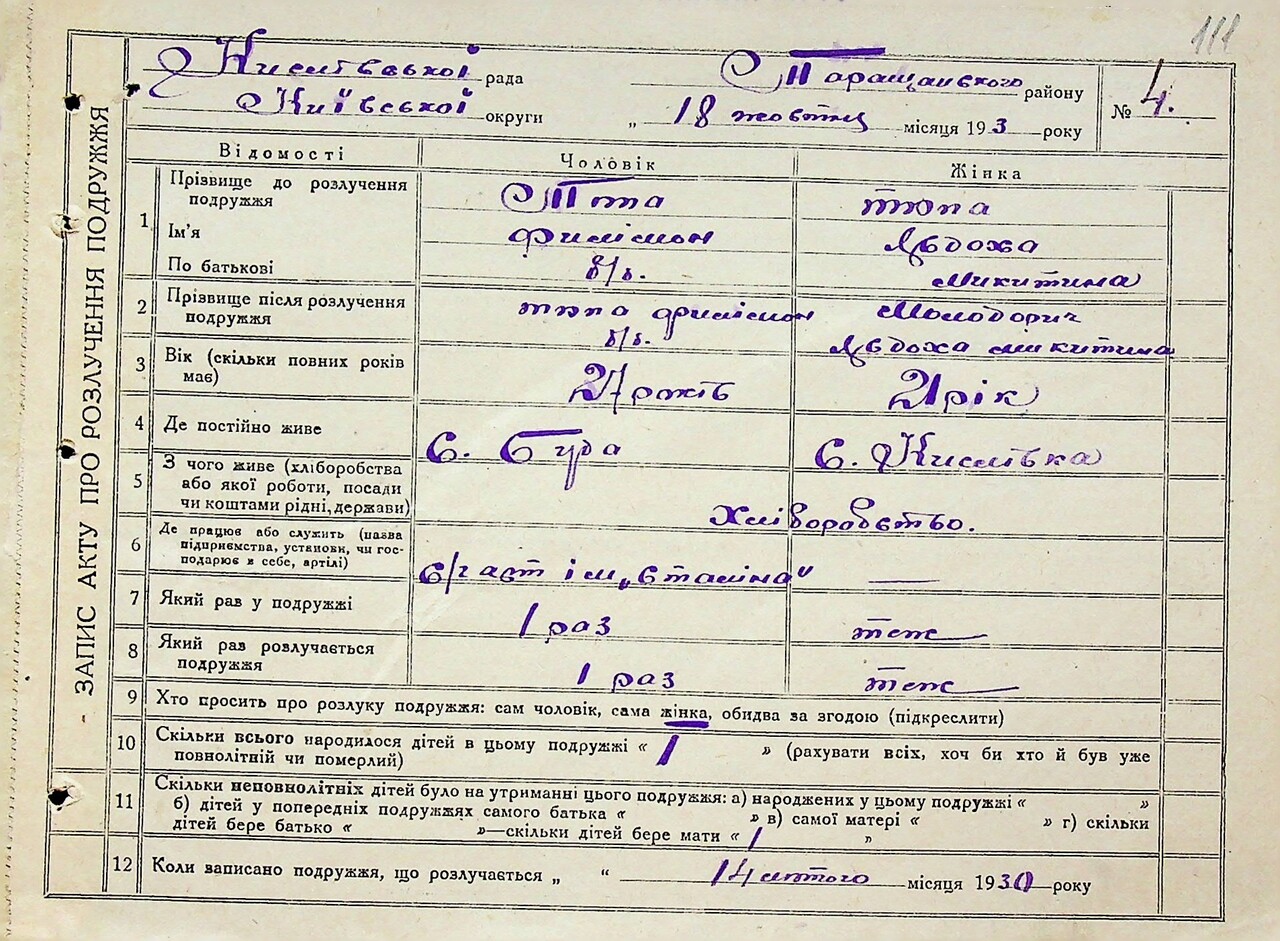 111
Кислівської рада Таращанського району
№ 4.
Київської округи „ 18 жовтня місяця 193 3 року
ЗАПИС АКТУ ПРО РОЗЛУЧЕННЯ ПОДРУЖЖЯ
Відомості Чоловік Жінка
1 Прізвище до розлучення подружжя Тюпа тюпа
Ім'я Филімон Явдоха
По батькові б/б. Микитина
2 Прізвище після розлучення подружжя тюпа филімон б/б. Молодорич Явдоха микитина
3 Вік (скільки повних років має) 27 років 21 рік
4 Де постійно живе с. Буда с. Кислівка
5 З чого живе (хліборобства або якої роботи, посади чи коштами рідні, держави) Хліборобство.
6 Де працює або служить (назва підприємства, установи, чи господарює в себе, артілі) с/г арт ім „Сталіна" —
7 Який раз у подружжі 1 раз теж
8 Який раз розлучається подружжя 1 раз теж
9 Хто просить про розлуку подружжя: сам чоловік, сама жінка, обидва за згодою (підкреслити)
10 Скільки всього народилося дітей в цьому подружжі « 1 » (рахувати всіх, хоч би хто й був уже
повнолітній чи померлий)
11 Скільки неповнолітніх дітей було на утриманні цього подружжя: а) народжених у цьому подружжі « »
б) дітей у попередніх подружжях самого батька « » в) самої матері « » г) скільки
дітей бере батько « »—скільки дітей бере мати « 1 »
12 Коли записано подружжя, що розлучається „ “ 14 лютого місяця 1930 року